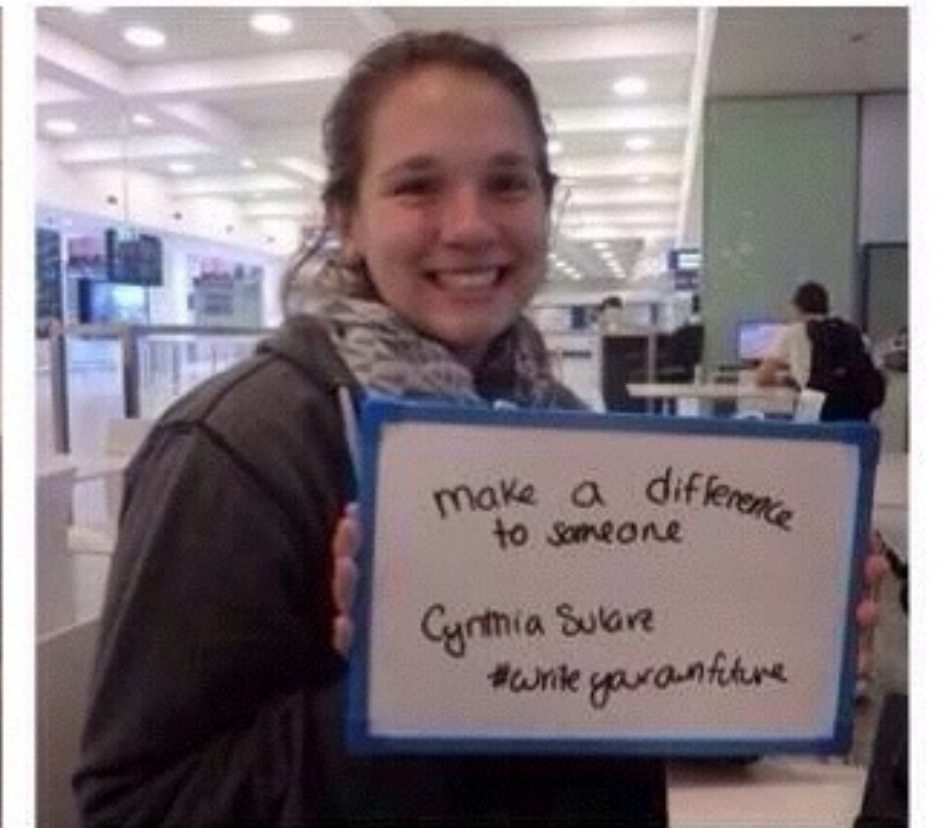 make a difference
to someone
Cynthia Sulare
#writeyourownfuture